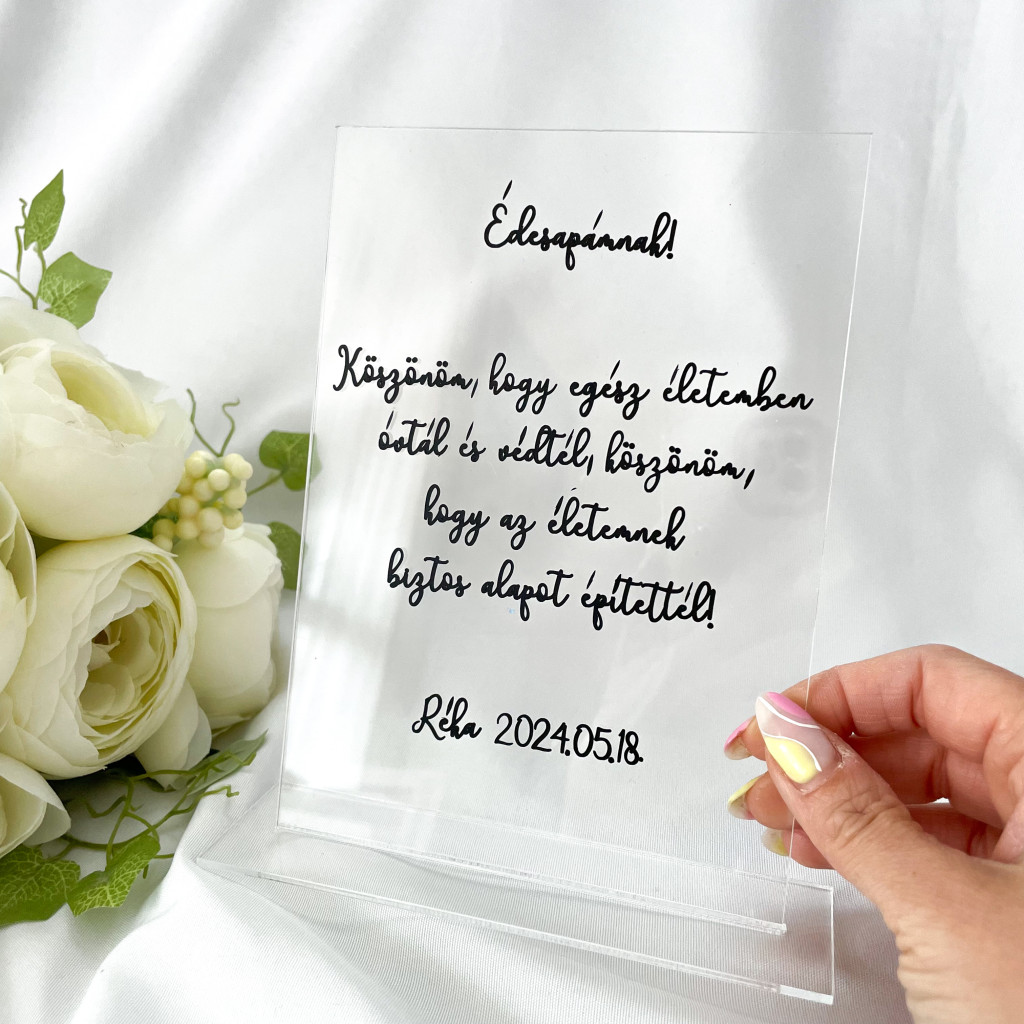 Édesapámnak!
Köszönöm, hogy egész életemben
óvtál és védtél, köszönöm,
hogy az életemnek
biztos alapot építettél!
Réka 2024.05.18.